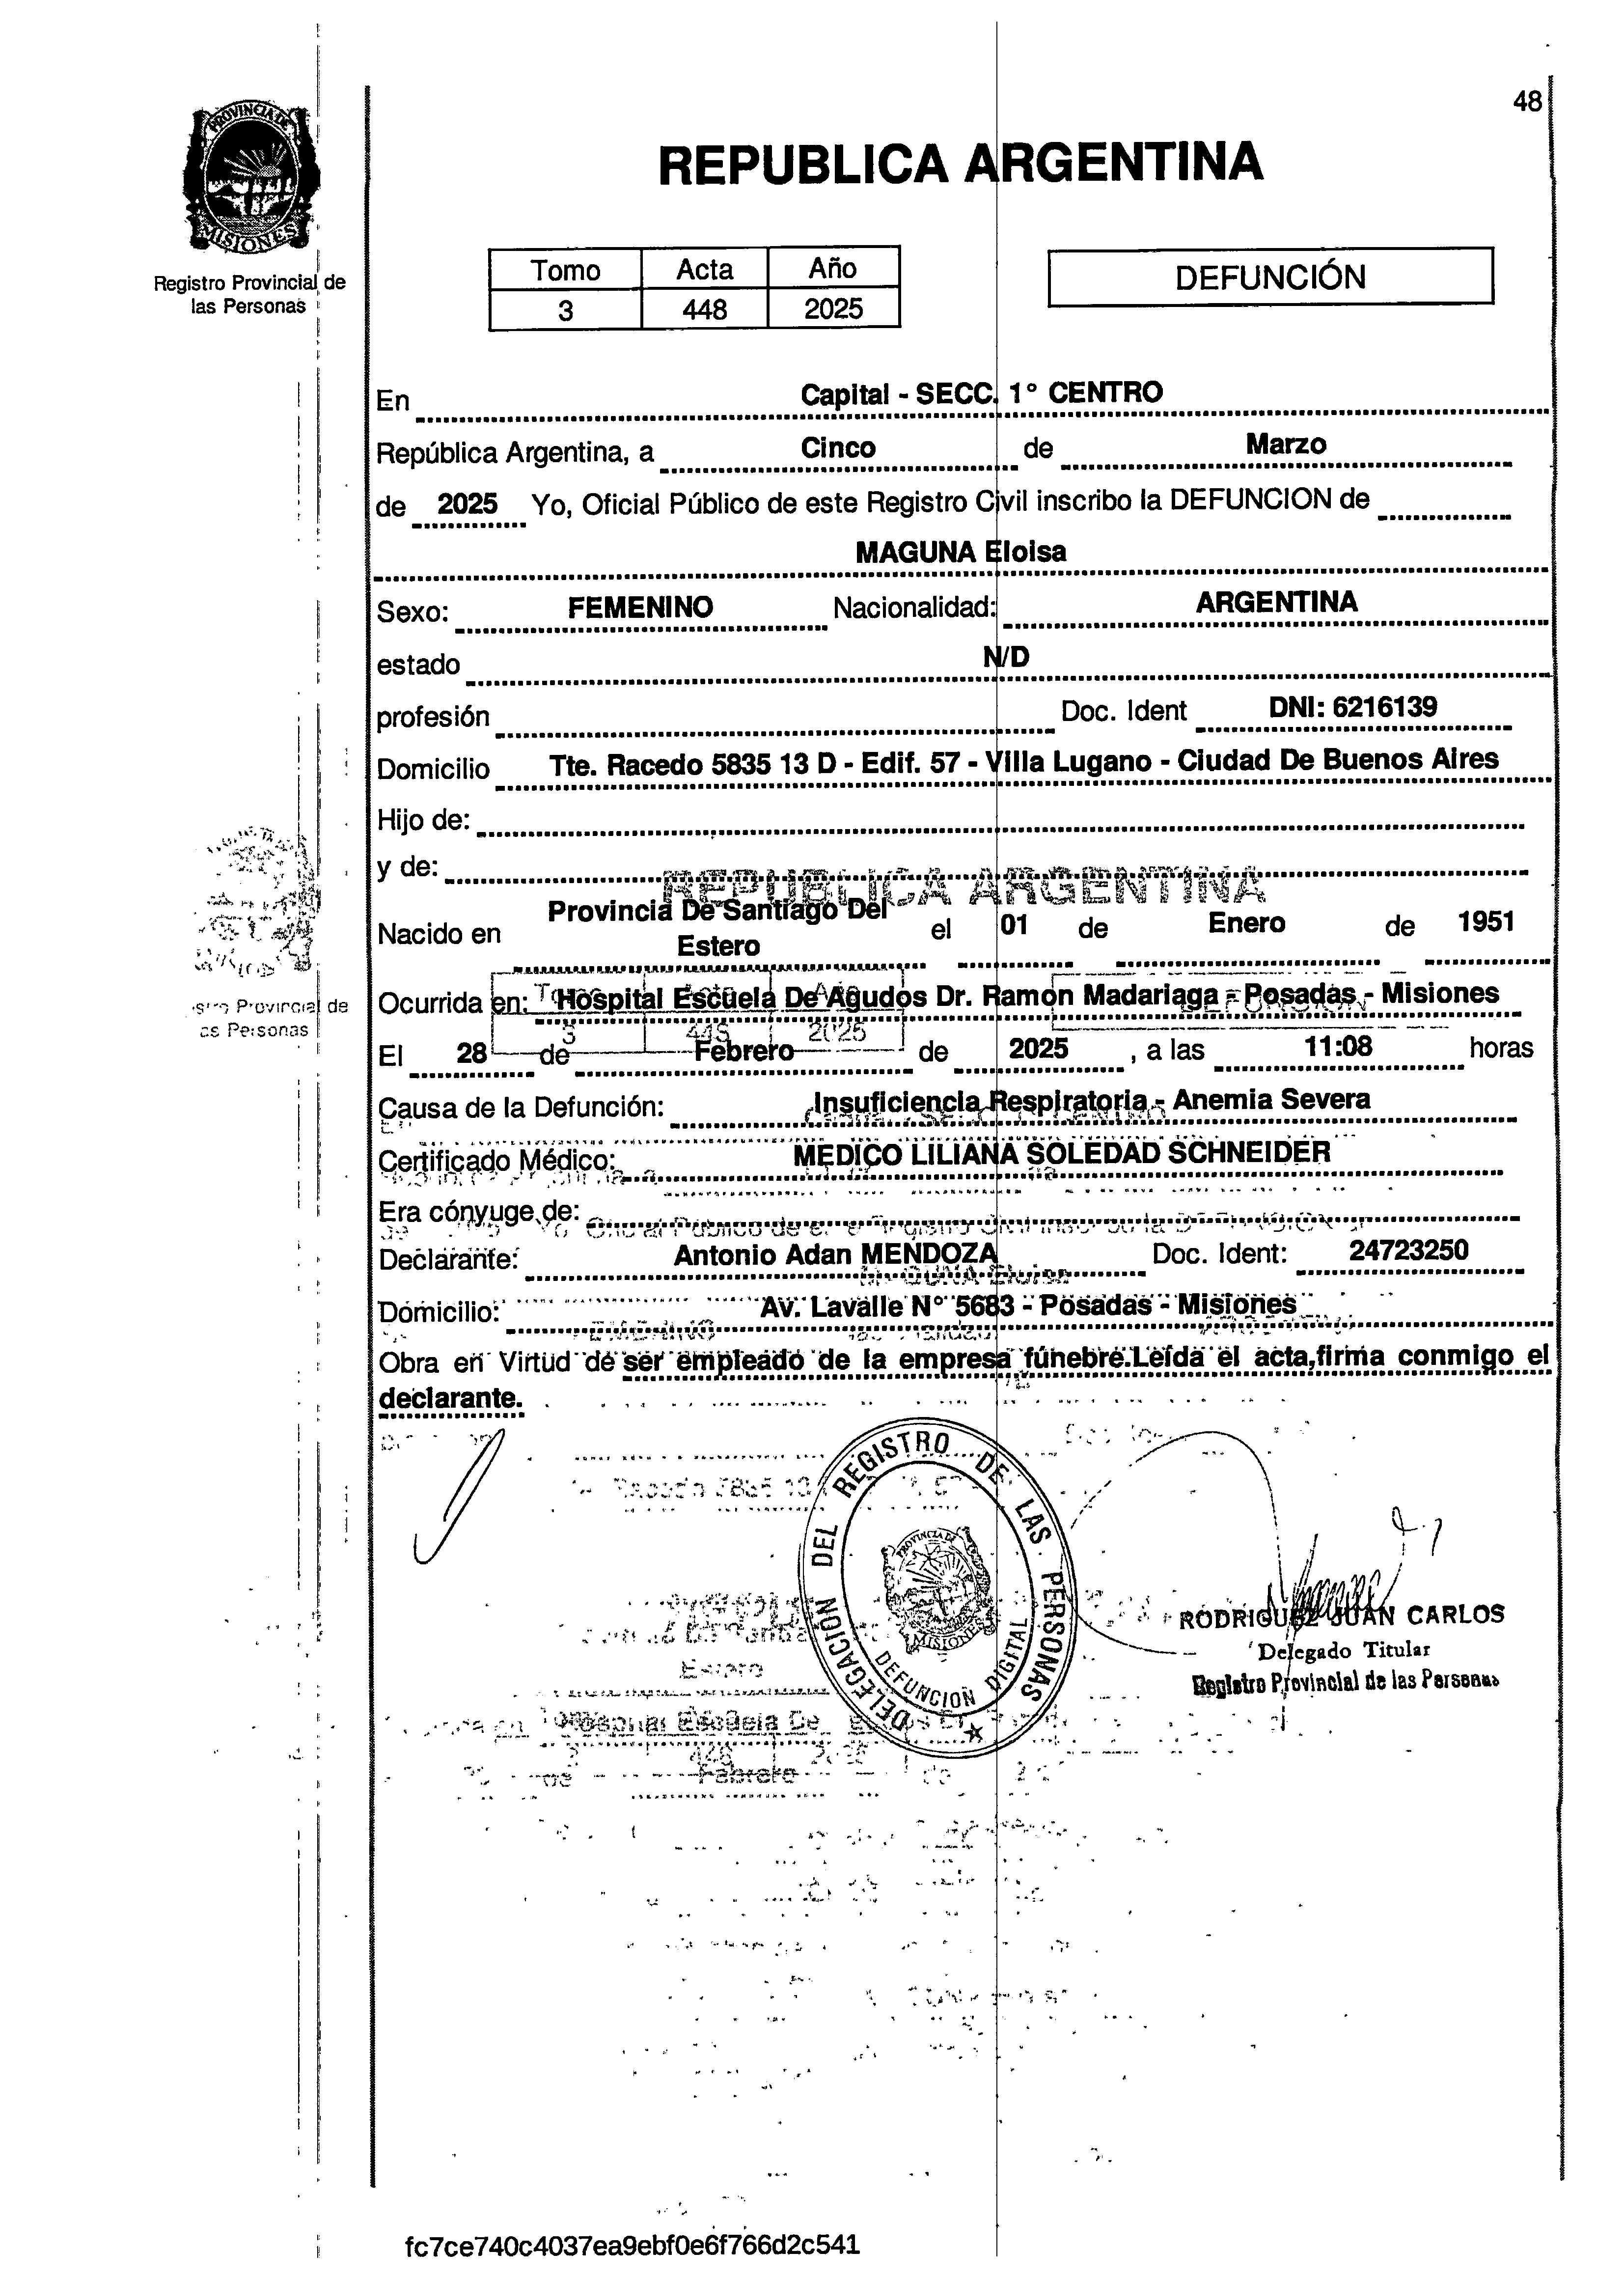 48
PROVINCIA DE
MISIONES
Registro Provincial de
las Personas
REPUBLICA ARGENTINA
Tomo Acta Año
3 448 2025
DEFUNCIÓN
En Capital - SECC. 1° CENTRO
República Argentina, a Cinco de Marzo
de 2025 Yo, Oficial Público de este Registro Civil inscribo la DEFUNCION de
MAGUNA Eloisa
Sexo: FEMENINO Nacionalidad: ARGENTINA
estado N/D
profesión Doc. Ident DNI: 6216139
Domicilio Tte. Racedo 5835 13 D - Edif. 57 - Villa Lugano - Ciudad De Buenos Aires
Hijo de:
y de:
REPUBLICA ARGENTINA
Nacido en Provincia De Santiago Del
Estero el 01 de Enero de 1951
Ocurrida en: Hospital Escuela De Agudos Dr. Ramon Madariaga - Posadas - Misiones
3 448 2025
El 28 de Febrero de 2025 , a las 11:08 horas
Causa de la Defunción: Insuficiencia Respiratoria - Anemia Severa
Certificado Médico: MEDICO LILIANA SOLEDAD SCHNEIDER
Era cónyuge de:
Declarante: Antonio Adan MENDOZA Doc. Ident: 24723250
Domicilio: Av. Lavalle N° 5683 - Posadas - Misiones
Obra en Virtud de ser empleado de la empresa fúnebre.Leída el acta,firma conmigo el
declarante.
DELEGACION DEL REGISTRO DE LAS PERSONAS
PROVINCIA DE
MISIONES
DEFUNCION DIGITAL
RODRIGUEZ JUAN CARLOS
Delegado Titular
Registro Provincial de las Personas
fc7ce740c4037ea9ebf0e6f766d2c541